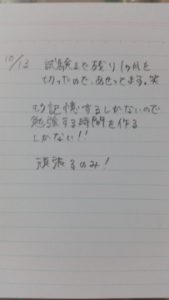 10/13 試験まで残り1か月を
切ったので、あせってます。笑
記憶するしかないので
勉強する時間を作る
しかない!!
頑張るのみ!